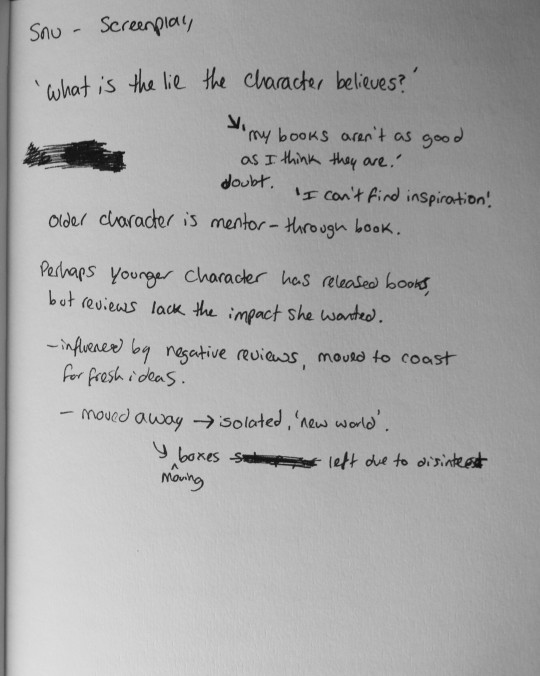 Snu - Screenplay
'What is the lie the character believes?'
'my books aren't as good
as I think they are.'
doubt.
'I can't find inspiration!'
older character is mentor - through book.
Perhaps younger character has released books,
but reviews lack the impact she wanted.
- influenced by negative reviews, moved to coast
for fresh ideas.
- moved away → isolated, 'new world'.
moving boxes left due to disinterest